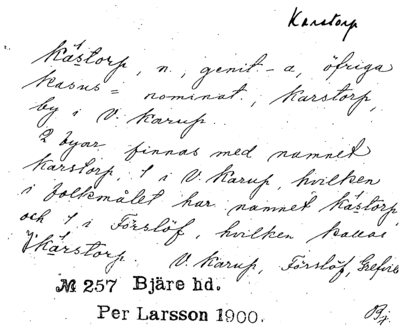 Karstorp
kåstorp, n, genit -a, öfriga
kasus = nominat., Karstorp,
by i V. Karup.
2 byar finnas med namnet
Karstorp, 1 i V. Karup, hvilken
i folkmålet har namnet kåstorp
och 1 i Förslöf, hvilken kallas
kårstorp. V. Karup, Förslöf, Grefvie
№ 257 Bjäre hd.
Per Larsson 1900.
Bj.